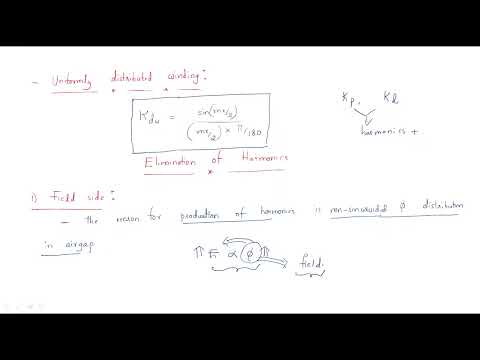 - Uniformly distributed winding :
K_du = sin(mα/2) / (mα/2) × π/180
Kp, Kd
harmonics +
Elimination of Harmonics
i) Field side :
- the reason for production of harmonics is non-sinusoidal φ distribution
in airgap
⇑ E α φ ⇑
field.